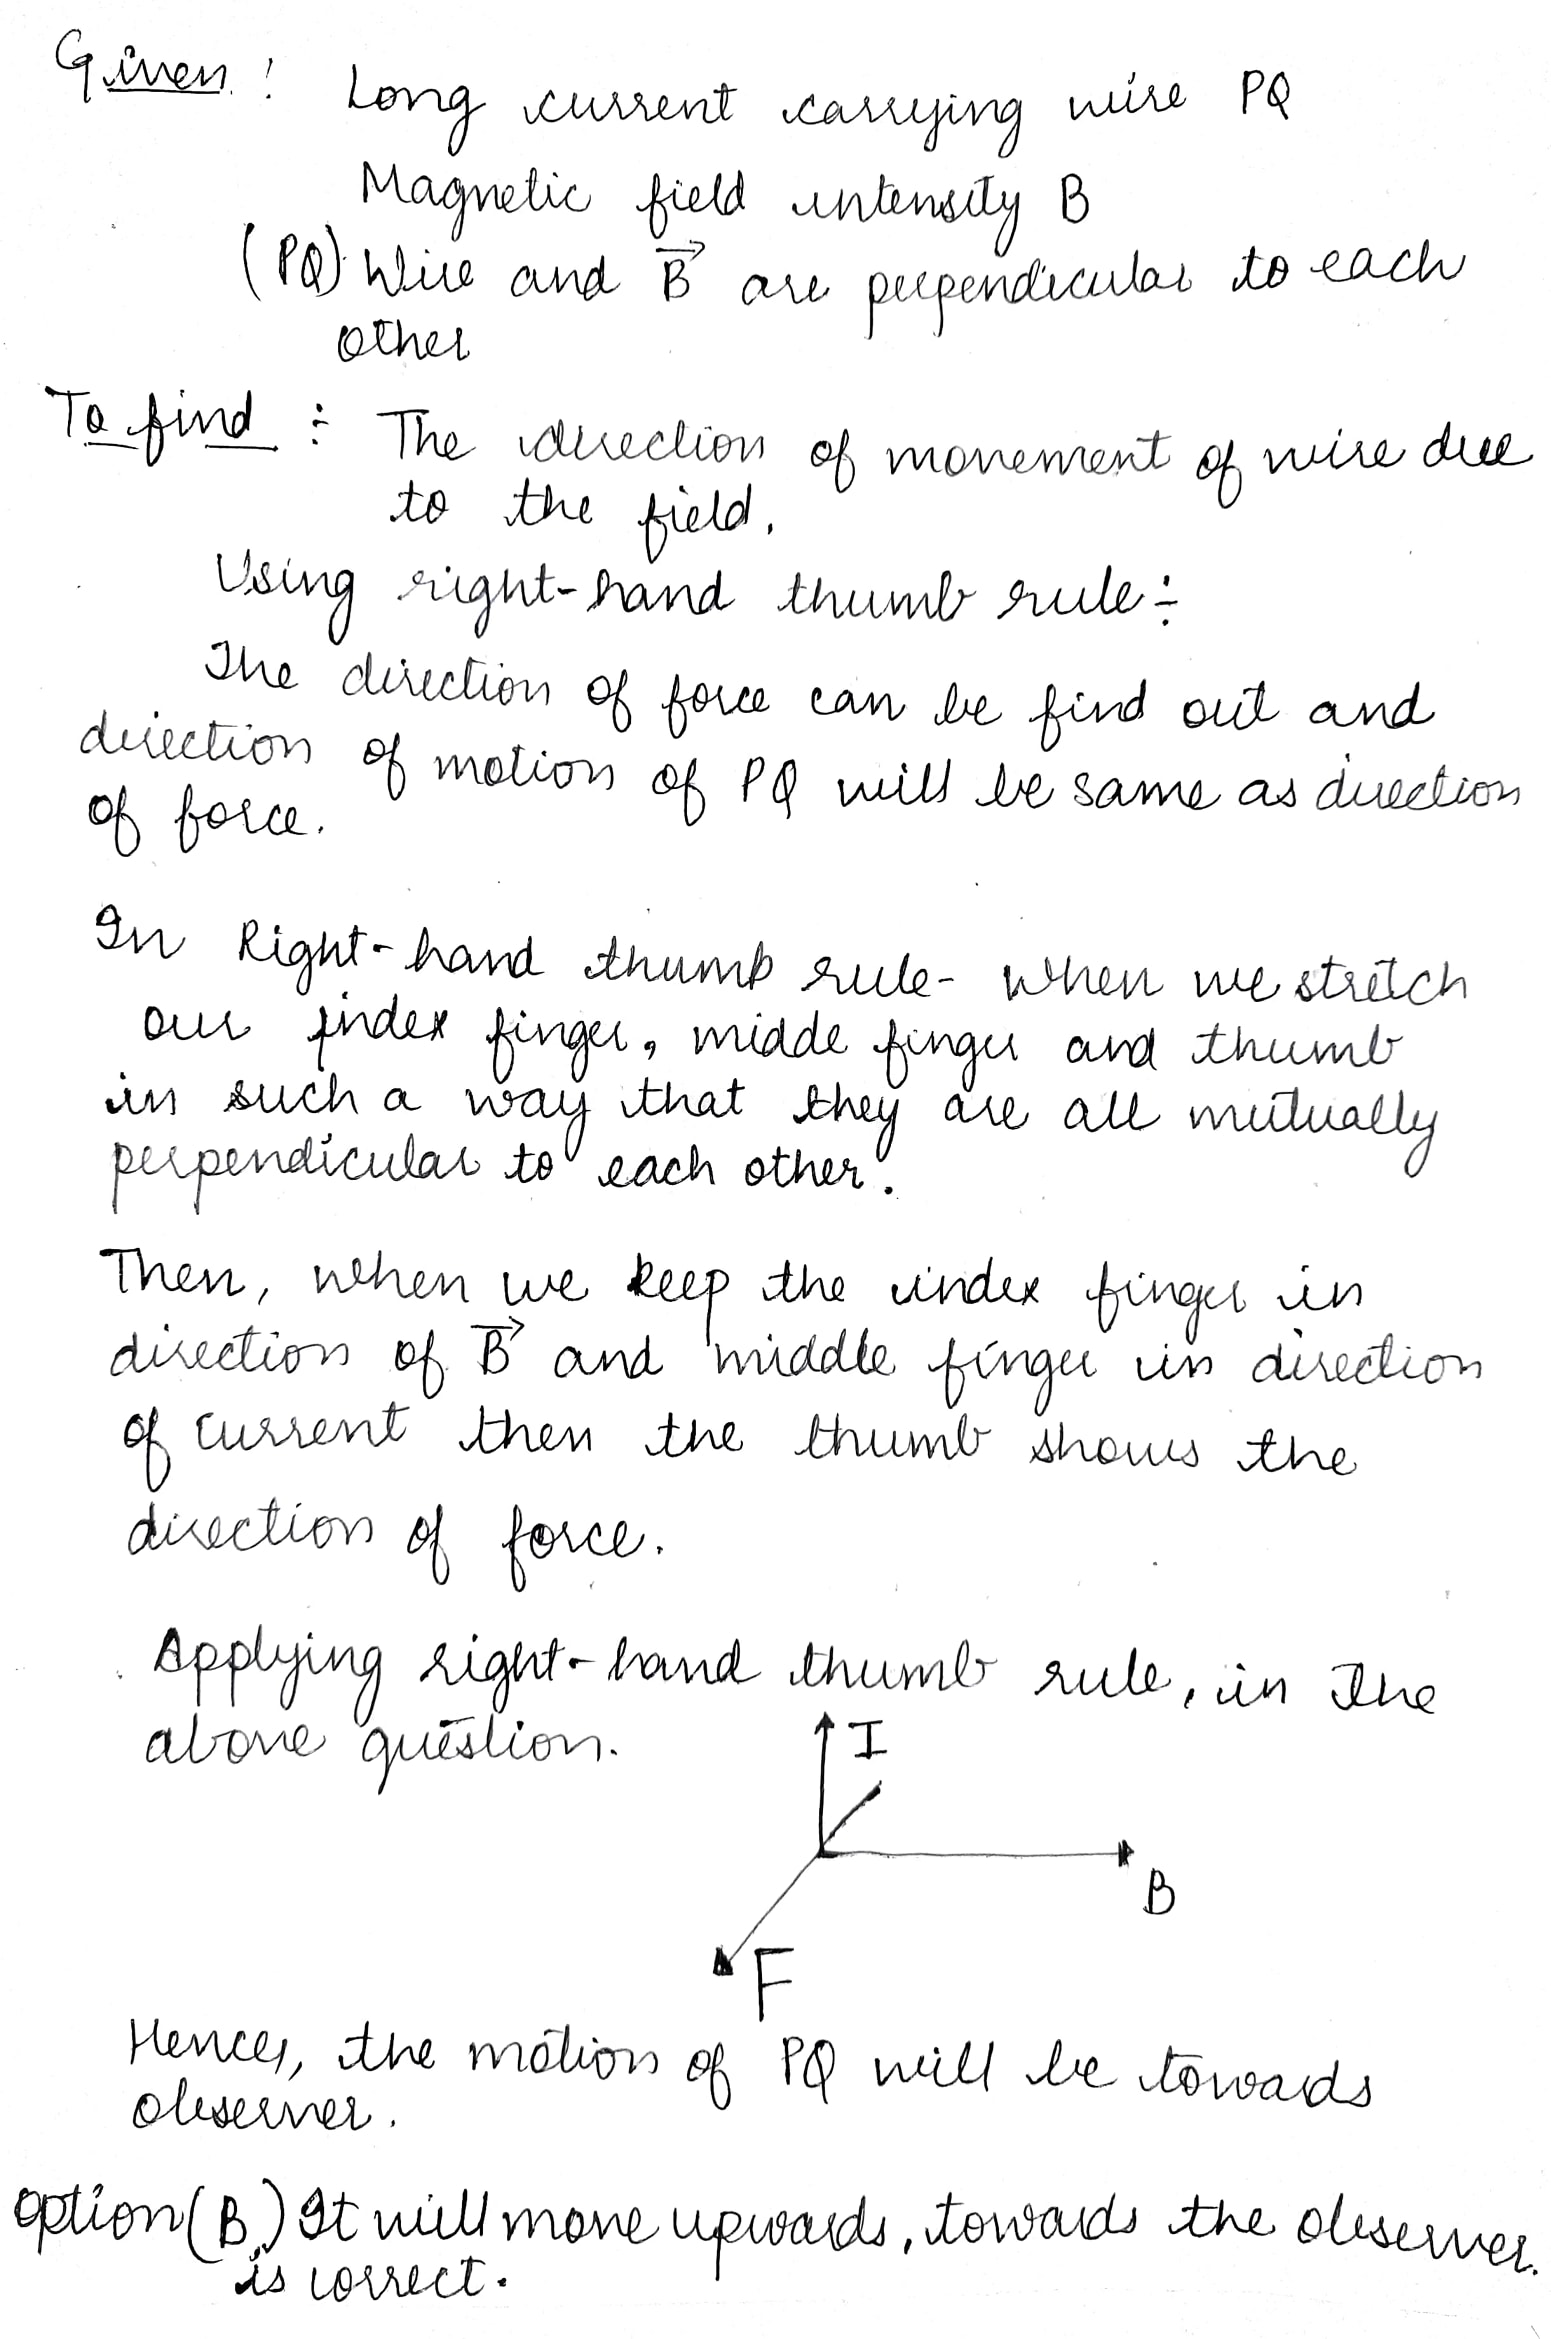 Given : Long current carrying wire PQ
Magnetic field intensity B
(PQ) Wire and B⃗ are perpendicular to each
other
To find ÷ The direction of movement of wire due
to the field.
Using right-hand thumb rule÷
The direction of force can be find out and
direction of motion of PQ will be same as direction
of force.
In Right-hand thumb rule- When we stretch
our index finger, midde finger and thumb
in such a way that they are all mutually
perpendicular to each other.
Then, when we keep the index finger in
direction of B⃗ and middle finger in direction
of current then the thumb shows the
direction of force.
Applying right-hand thumb rule, in the
above question.
I
B
F
Hence, the motion of PQ will be towards
observer.
option (B) It will move upwards, towards the observer.
is correct.